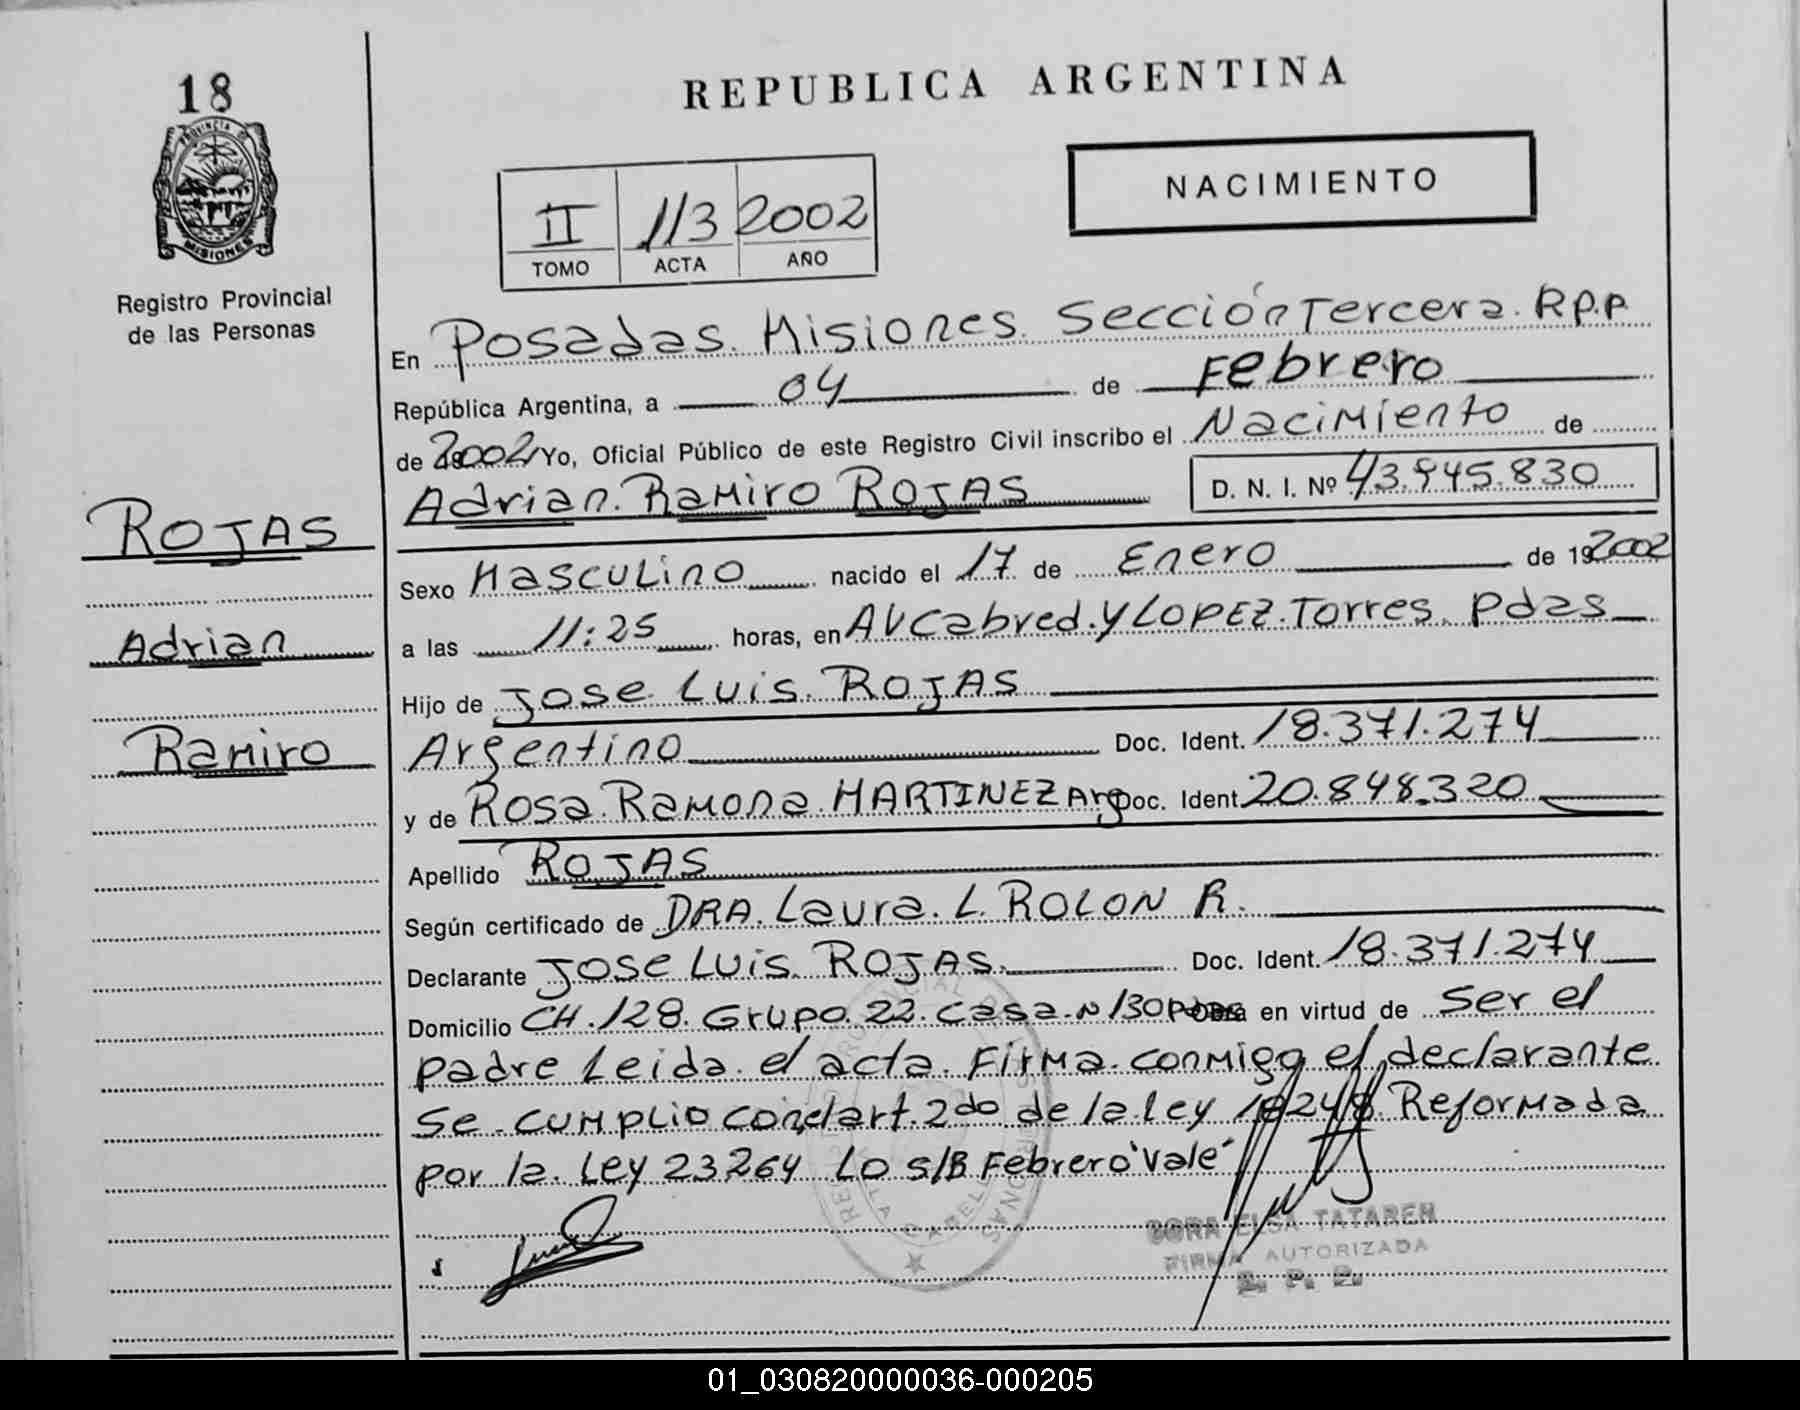 18
PROVINCIA DE
MISIONES
Registro Provincial
de las Personas
REPUBLICA ARGENTINA
NACIMIENTO
II 113 2002
TOMO ACTA AÑO
En Posadas. Misiones. Sección Tercera. R.P.P
República Argentina, a 04 de Febrero
de 2002 Yo, Oficial Público de este Registro Civil inscribo el Nacimiento de
Adrian. Ramiro ROJAS D. N. I. Nº 43.945.830
ROJAS
Sexo Masculino nacido el 17 de Enero de 19 2002
Adrian
a las 11:25 horas, en AV Cabred. y LOPEZ. Torres. Pdas
Hijo de Jose Luis. ROJAS
Ramiro
Argentino Doc. Ident. 18.371.274
y de Rosa. Ramona. MARTINEZ Arg Doc. Ident. 20.848.320
Apellido ROJAS
Según certificado de DRA. Laura. L. ROLON R.
Declarante Jose Luis. ROJAS. Doc. Ident. 18.371.274
Domicilio CH. 128. Grupo. 22. Casa. N 130 en virtud de ser el
padre Leida. el acta. Firma. conmigo el declarante.
se cumplio con el art. 2do de la ley 18248. Reformada
por la. Ley 23264 Lo s/B Febrero "Vale"
ELSA TATAREN
FIRMA AUTORIZADA
01_030820000036-000205